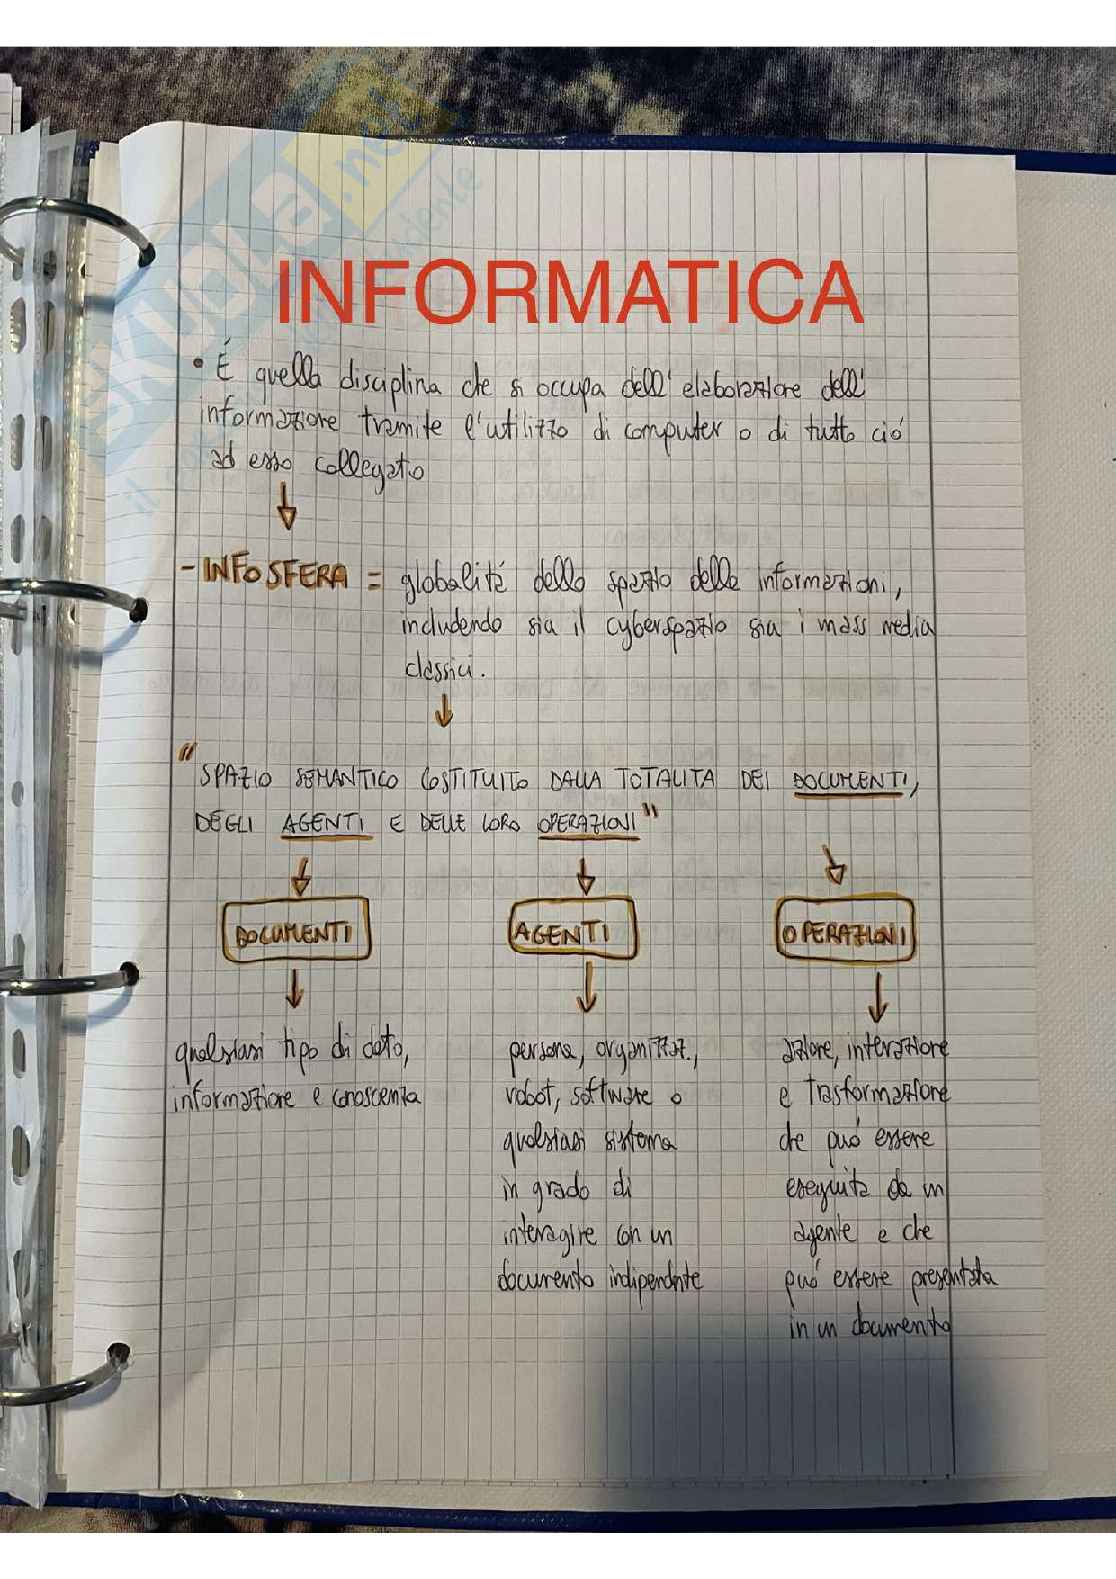 SKUOLA.net
INFORMATICA
• É quella disciplina che si occupa dell'elaborazione dell'
informazione tramite l'utilizzo di computer o di tutto ció
ad esso collegato
- INFOSFERA = globalité dello spazio delle informazioni,
includendo sia il cyberspazio sia i mass media
classici.
"SPAZIO SEMANTICO COSTITUITO DALLA TOTALITA DEI DOCUMENTI,
DEGLI AGENTI E DELLE LORO OPERAZIONI"
DOCUMENTI
qualsiasi tipo di dato,
informazione e conoscenza
AGENTI
persona, organizzaz.,
robot, software o
qualsiasi sistema
in grado di
interagire con un
documento indipendente
OPERAZIONI
azione, interazione
e trasformazione
che puó essere
eseguita da un
agente e che
puó essere presentata
in un documento